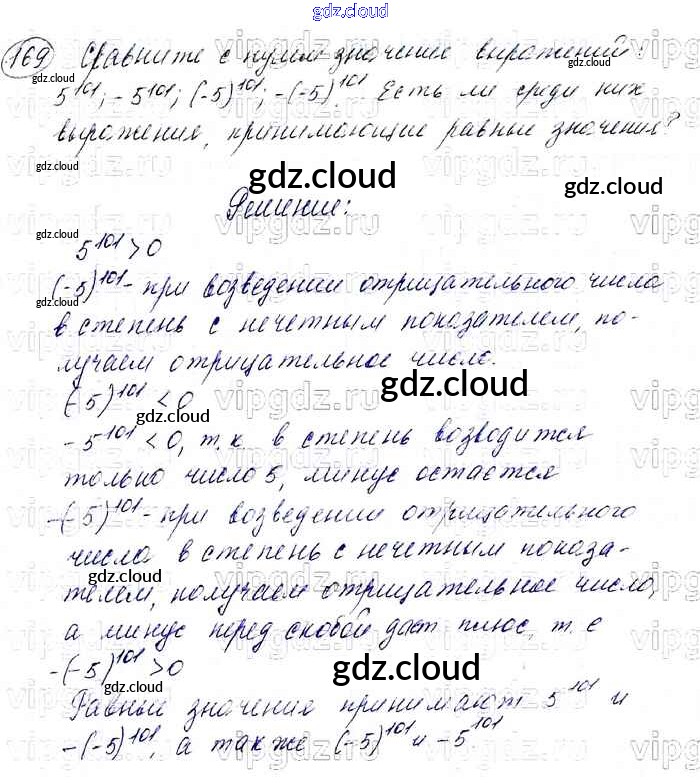 gdz.cloud
169 Сравните с нулём значение выражений:
5^101; -5^101; (-5)^101; -(-5)^101. Есть ли среди них
выражения, принимающие равные значения?
Решение:
5^101 > 0
(-5)^101 - при возведении отрицательного числа
в степень с нечетным показателем, по-
лучаем отрицательное число.
(-5)^101 < 0
-5^101 < 0, т.к. в степень возводится
только число 5, минус остаётся
-(-5)^101 - при возведении отрицательного
числа в степень с нечетным показа-
телем, получаем отрицательное число,
а минус перед скобой даст плюс, т.е
-(-5)^101 > 0
Равные значения принимают 5^101 и
-(-5)^101, а также (-5)^101 и -5^101